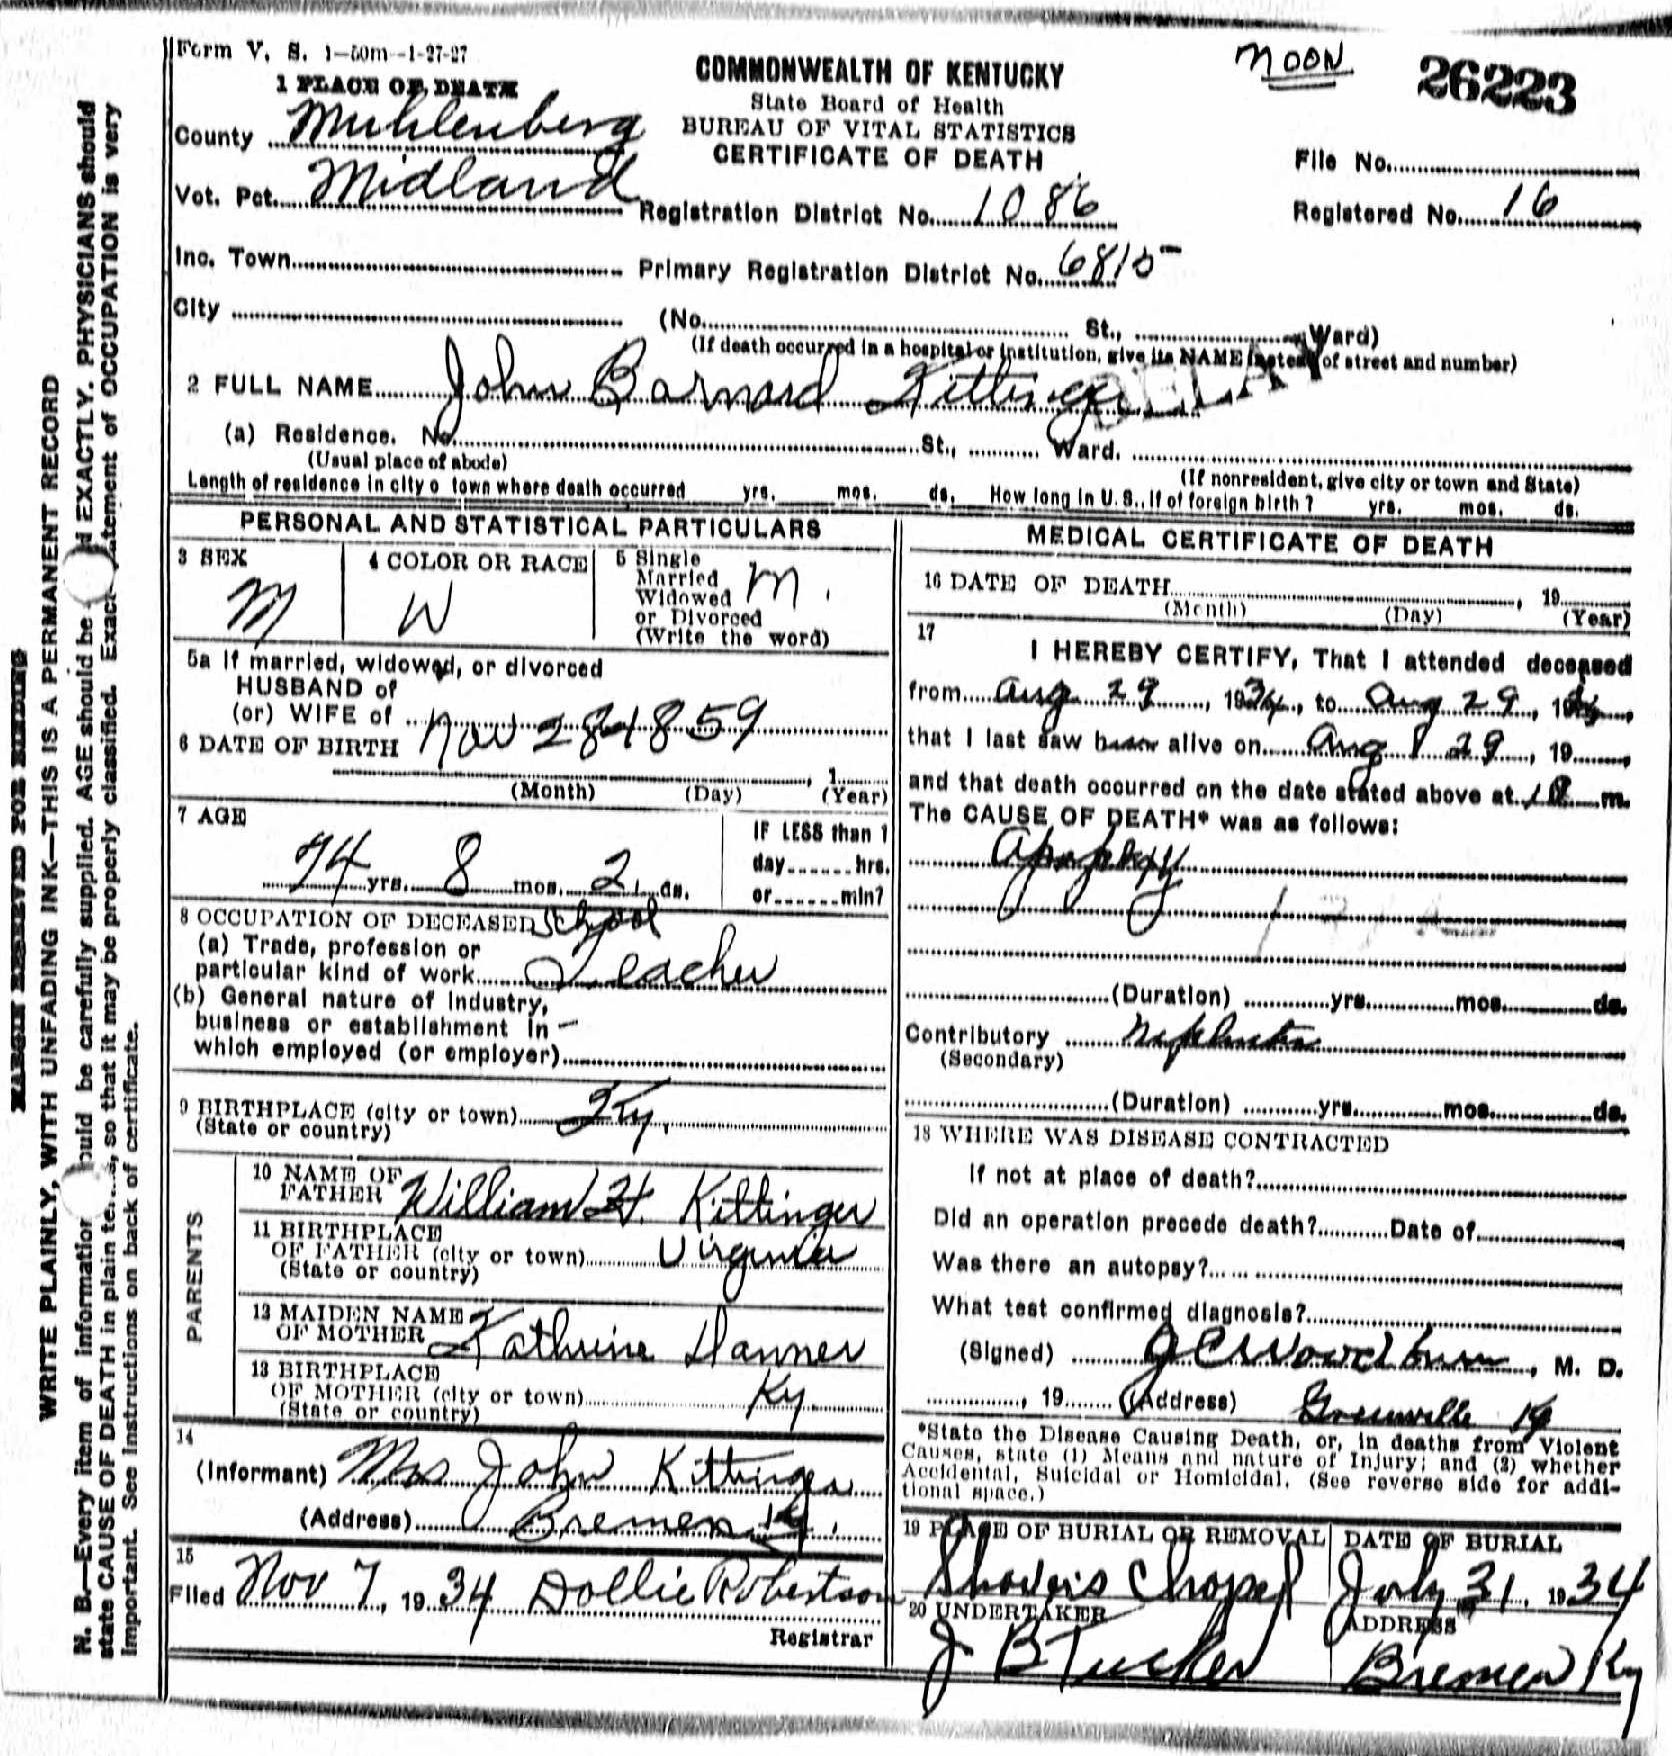 Form V. S. 1—50m—1-27-27
1 PLACE OF DEATH
County Muhlenberg
Vot. Pct. Midland
Inc. Town
City
COMMONWEALTH OF KENTUCKY
State Board of Health
BUREAU OF VITAL STATISTICS
CERTIFICATE OF DEATH
Registration District No. 1086
Primary Registration District No. 6815
NOON
26223
File No.
Registered No. 16
(No. St., Ward)
(If death occurred in a hospital or institution, give its NAME instead of street and number)
2 FULL NAME John Barnard Kittinger
DELAY
(a) Residence. No. St., Ward.
(Usual place of abode) (If nonresident, give city or town and State)
Length of residence in city o town where death occurred yrs. mos. ds. How long in U. S., if of foreign birth? yrs. mos. ds.
PERSONAL AND STATISTICAL PARTICULARS
3 SEX
M
4 COLOR OR RACE
W
5 Single
Married
Widowed
or Divorced
(Write the word)
M.
5a If married, widowed, or divorced
HUSBAND of
(or) WIFE of
6 DATE OF BIRTH Nov 28 1859
(Month) (Day) (Year)
7 AGE
74 yrs. 8 mos. 2 ds.
IF LESS than 1
day hrs.
or min?
8 OCCUPATION OF DECEASED School
(a) Trade, profession or
particular kind of work Teacher
(b) General nature of Industry,
business or establishment in —
which employed (or employer)
9 BIRTHPLACE (city or town) Ky.
(State or country)
PARENTS
10 NAME OF
FATHER William H. Kittinger
11 BIRTHPLACE
OF FATHER (city or town) Virginia
(State or country)
12 MAIDEN NAME
OF MOTHER Kathrine Danner
13 BIRTHPLACE
OF MOTHER (city or town) Ky
(State or country)
14
(Informant) Mrs John Kittinger
(Address) Bremen Ky.
15
Filed Nov 7, 1934 Dollie Robertson
Registrar
MEDICAL CERTIFICATE OF DEATH
16 DATE OF DEATH , 19
(Month) (Day) (Year)
17
I HEREBY CERTIFY, That I attended deceased
from Aug 29, 1934, to Aug 29, 19
that I last saw alive on Aug 29, 19
and that death occurred on the date stated above at m.
The CAUSE OF DEATH* was as follows:
Apoplexy
(Duration) yrs. mos. ds.
Contributory Nephritis
(Secondary)
(Duration) yrs. mos. ds.
18 WHERE WAS DISEASE CONTRACTED
If not at place of death?
Did an operation precede death? Date of
Was there an autopsy?
What test confirmed diagnosis?
(Signed) J C Woodburn, M. D.
, 19 (Address) Greenville Ky
*State the Disease Causing Death, or, in deaths from Violent
Causes, state (1) Means and nature of Injury; and (2) whether
Accidental, Suicidal or Homicidal. (See reverse side for addi-
tional space.)
19 PLACE OF BURIAL OR REMOVAL
Shaver's Chapel
DATE OF BURIAL
July 31, 1934
20 UNDERTAKER
J. B Tucker
ADDRESS
Bremen Ky
MARGIN RESERVED FOR BINDING
WRITE PLAINLY, WITH UNFADING INK—THIS IS A PERMANENT RECORD
N. B.—Every item of information ould be carefully supplied. AGE should be d EXACTLY. PHYSICIANS should
state CAUSE OF DEATH in plain te , so that it may be properly classified. Exact atement of OCCUPATION is very
important. See instructions on back of certificate.